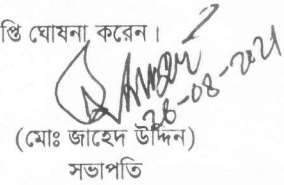 প্তি ঘোষনা করেন।
28-08-2021
(মোঃ জাহেদ উদ্দিন)
সভাপতি